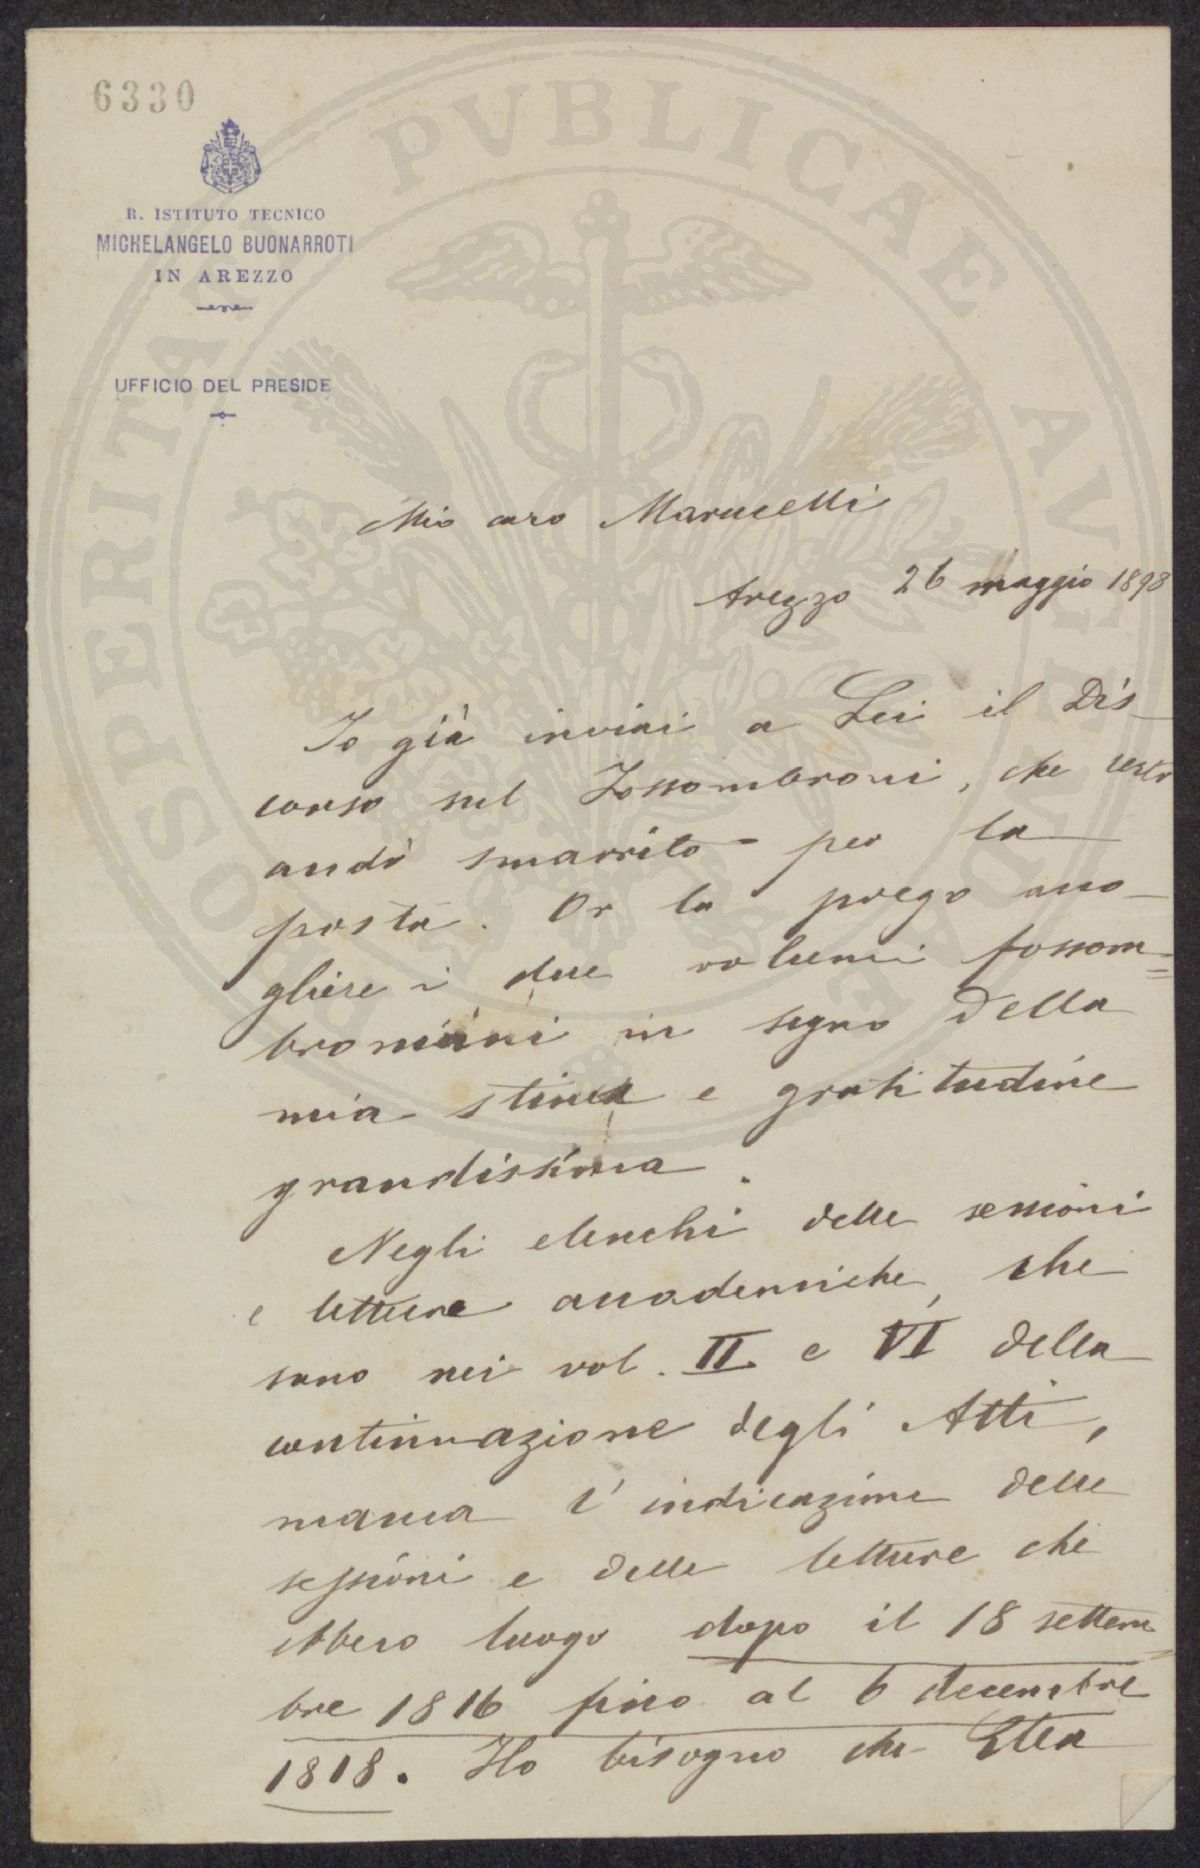 6330
R. ISTITUTO TECNICO
MICHELANGELO BUONARROTI
IN AREZZO
UFFICIO DEL PRESIDE
PROSPERITATI PVBLICAE AVGENDAE
Mio caro Marucelli
Arezzo 26 maggio 1898
Io già inviai a Lei il Dis-
corso sul Fossombroni, che
andò smarrito per la
posta. Or la prego acco-
gliere i due volumi fossom=
broniani in segno della
mia stima e gratitudine
grandissima.
Negli elenchi delle sessioni
e letture accademiche, che
sono nei vol. II e VI della
continuazione degli Atti,
manca l'indicazione delle
sessioni e delle letture che
ebbero luogo dopo il 18 settem=
bre 1816 fino al 6 decembre
1818. Ho bisogno che Ella